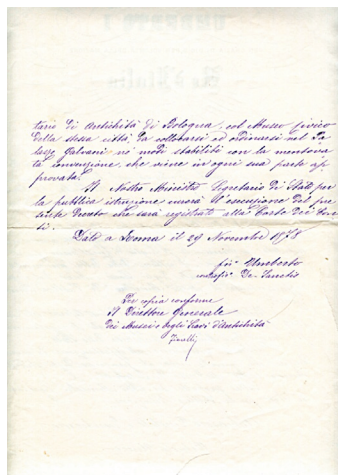 tario di Antichità di Bologna, col Museo Civico
della stessa città, da collocarsi ed ordinarsi nel Pa
lazzo Galvani nei modi stabiliti con la mentova
ta convenzione, che viene in ogni sua parte ap
provata.
Il Nostro Ministro Segretario di Stato per
la pubblica istruzione curerà l'esecuzione del pre
sente Decreto che sarà registrato alla Corte dei Con
ti.
Dato a Roma il 29 Novembre 1878
fto Umberto
controfto De Sanctis
Per copia conforme
Il Direttore Generale
dei Musei e degli Scavi d'Antichità
Fiorelli